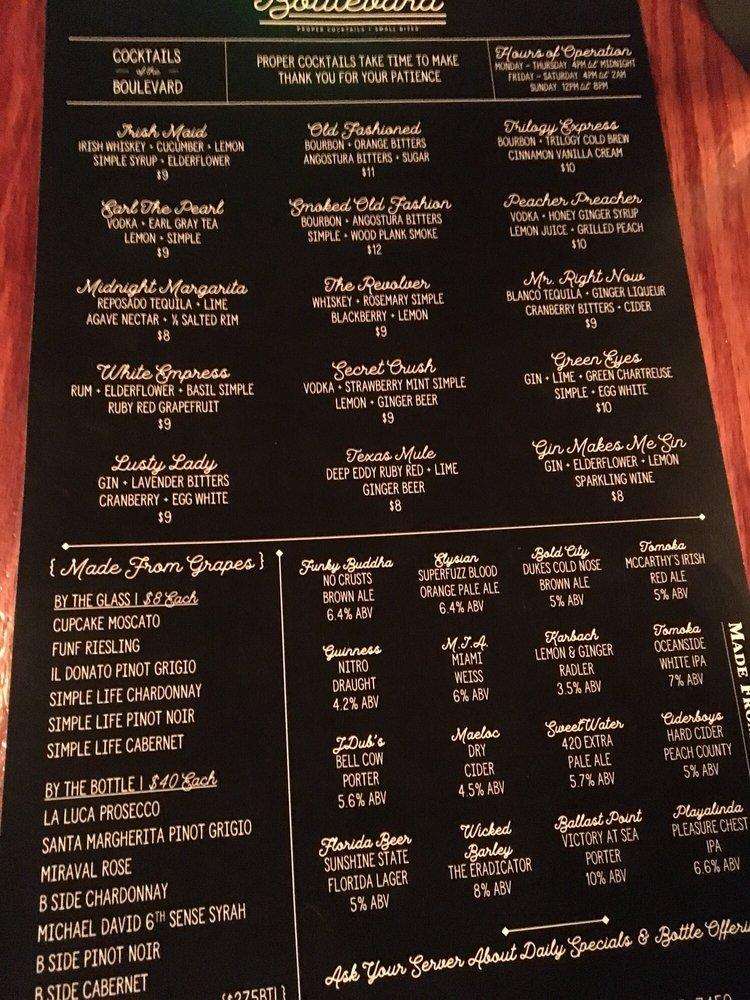 Boulevard
PROPER COCKTAILS | SMALL BITES
COCKTAILS
of the
BOULEVARD
PROPER COCKTAILS TAKE TIME TO MAKE
THANK YOU FOR YOUR PATIENCE
Hours of Operation
MONDAY - THURSDAY 4PM til MIDNIGHT
FRIDAY - SATURDAY 4PM til 2AM
SUNDAY 12PM til 8PM
Irish Maid
IRISH WHISKEY + CUCUMBER + LEMON
SIMPLE SYRUP + ELDERFLOWER
$9
Earl The Pearl
VODKA + EARL GRAY TEA
LEMON + SIMPLE
$9
Midnight Margarita
REPOSADO TEQUILA + LIME
AGAVE NECTAR + ½ SALTED RIM
$8
White Empress
RUM + ELDERFLOWER + BASIL SIMPLE
RUBY RED GRAPEFRUIT
$9
Lusty Lady
GIN + LAVENDER BITTERS
CRANBERRY + EGG WHITE
$9
Old Fashioned
BOURBON + ORANGE BITTERS
ANGOSTURA BITTERS + SUGAR
$11
Smoked Old Fashion
BOURBON + ANGOSTURA BITTERS
SIMPLE + WOOD PLANK SMOKE
$12
The Revolver
WHISKEY + ROSEMARY SIMPLE
BLACKBERRY + LEMON
$9
Secret Crush
VODKA + STRAWBERRY MINT SIMPLE
LEMON + GINGER BEER
$9
Texas Mule
DEEP EDDY RUBY RED + LIME
GINGER BEER
$8
Trilogy Express
BOURBON + TRILOGY COLD BREW
CINNAMON VANILLA CREAM
$10
Peacher Preacher
VODKA + HONEY GINGER SYRUP
LEMON JUICE + GRILLED PEACH
$10
Mr. Right Now
BLANCO TEQUILA + GINGER LIQUEUR
CRANBERRY BITTERS + CIDER
$9
Green Eyes
GIN + LIME + GREEN CHARTREUSE
SIMPLE + EGG WHITE
$10
Gin Makes Me Sin
GIN + ELDERFLOWER + LEMON
SPARKLING WINE
$8
{ Made From Grapes }
BY THE GLASS | $8 Each
CUPCAKE MOSCATO
FUNF RIESLING
IL DONATO PINOT GRIGIO
SIMPLE LIFE CHARDONNAY
SIMPLE LIFE PINOT NOIR
SIMPLE LIFE CABERNET
BY THE BOTTLE | $40 Each
LA LUCA PROSECCO
SANTA MARGHERITA PINOT GRIGIO
MIRAVAL ROSE
B SIDE CHARDONNAY
MICHAEL DAVID 6TH SENSE SYRAH
B SIDE PINOT NOIR
B SIDE CABERNET
{$275BTL}
Funky Buddha
NO CRUSTS
BROWN ALE
6.4% ABV
Elysian
SUPERFUZZ BLOOD
ORANGE PALE ALE
6.4% ABV
Bold City
DUKES COLD NOSE
BROWN ALE
5% ABV
Tomoka
MCCARTHY'S IRISH
RED ALE
5% ABV
Guinness
NITRO
DRAUGHT
4.2% ABV
M.I.A.
MIAMI
WEISS
6% ABV
Karbach
LEMON & GINGER
RADLER
3.5% ABV
Tomoka
OCEANSIDE
WHITE IPA
7% ABV
JDub's
BELL COW
PORTER
5.6% ABV
Maeloc
DRY
CIDER
4.5% ABV
SweetWater
420 EXTRA
PALE ALE
5.7% ABV
Ciderboys
HARD CIDER
PEACH COUNTY
5% ABV
Florida Beer
SUNSHINE STATE
FLORIDA LAGER
5% ABV
Wicked
Barley
THE ERADICATOR
8% ABV
Ballast Point
VICTORY AT SEA
PORTER
10% ABV
Playalinda
PLEASURE CHEST
IPA
6.6% ABV
MADE FRO
Ask Your Server About Daily Specials & Bottle Offeri